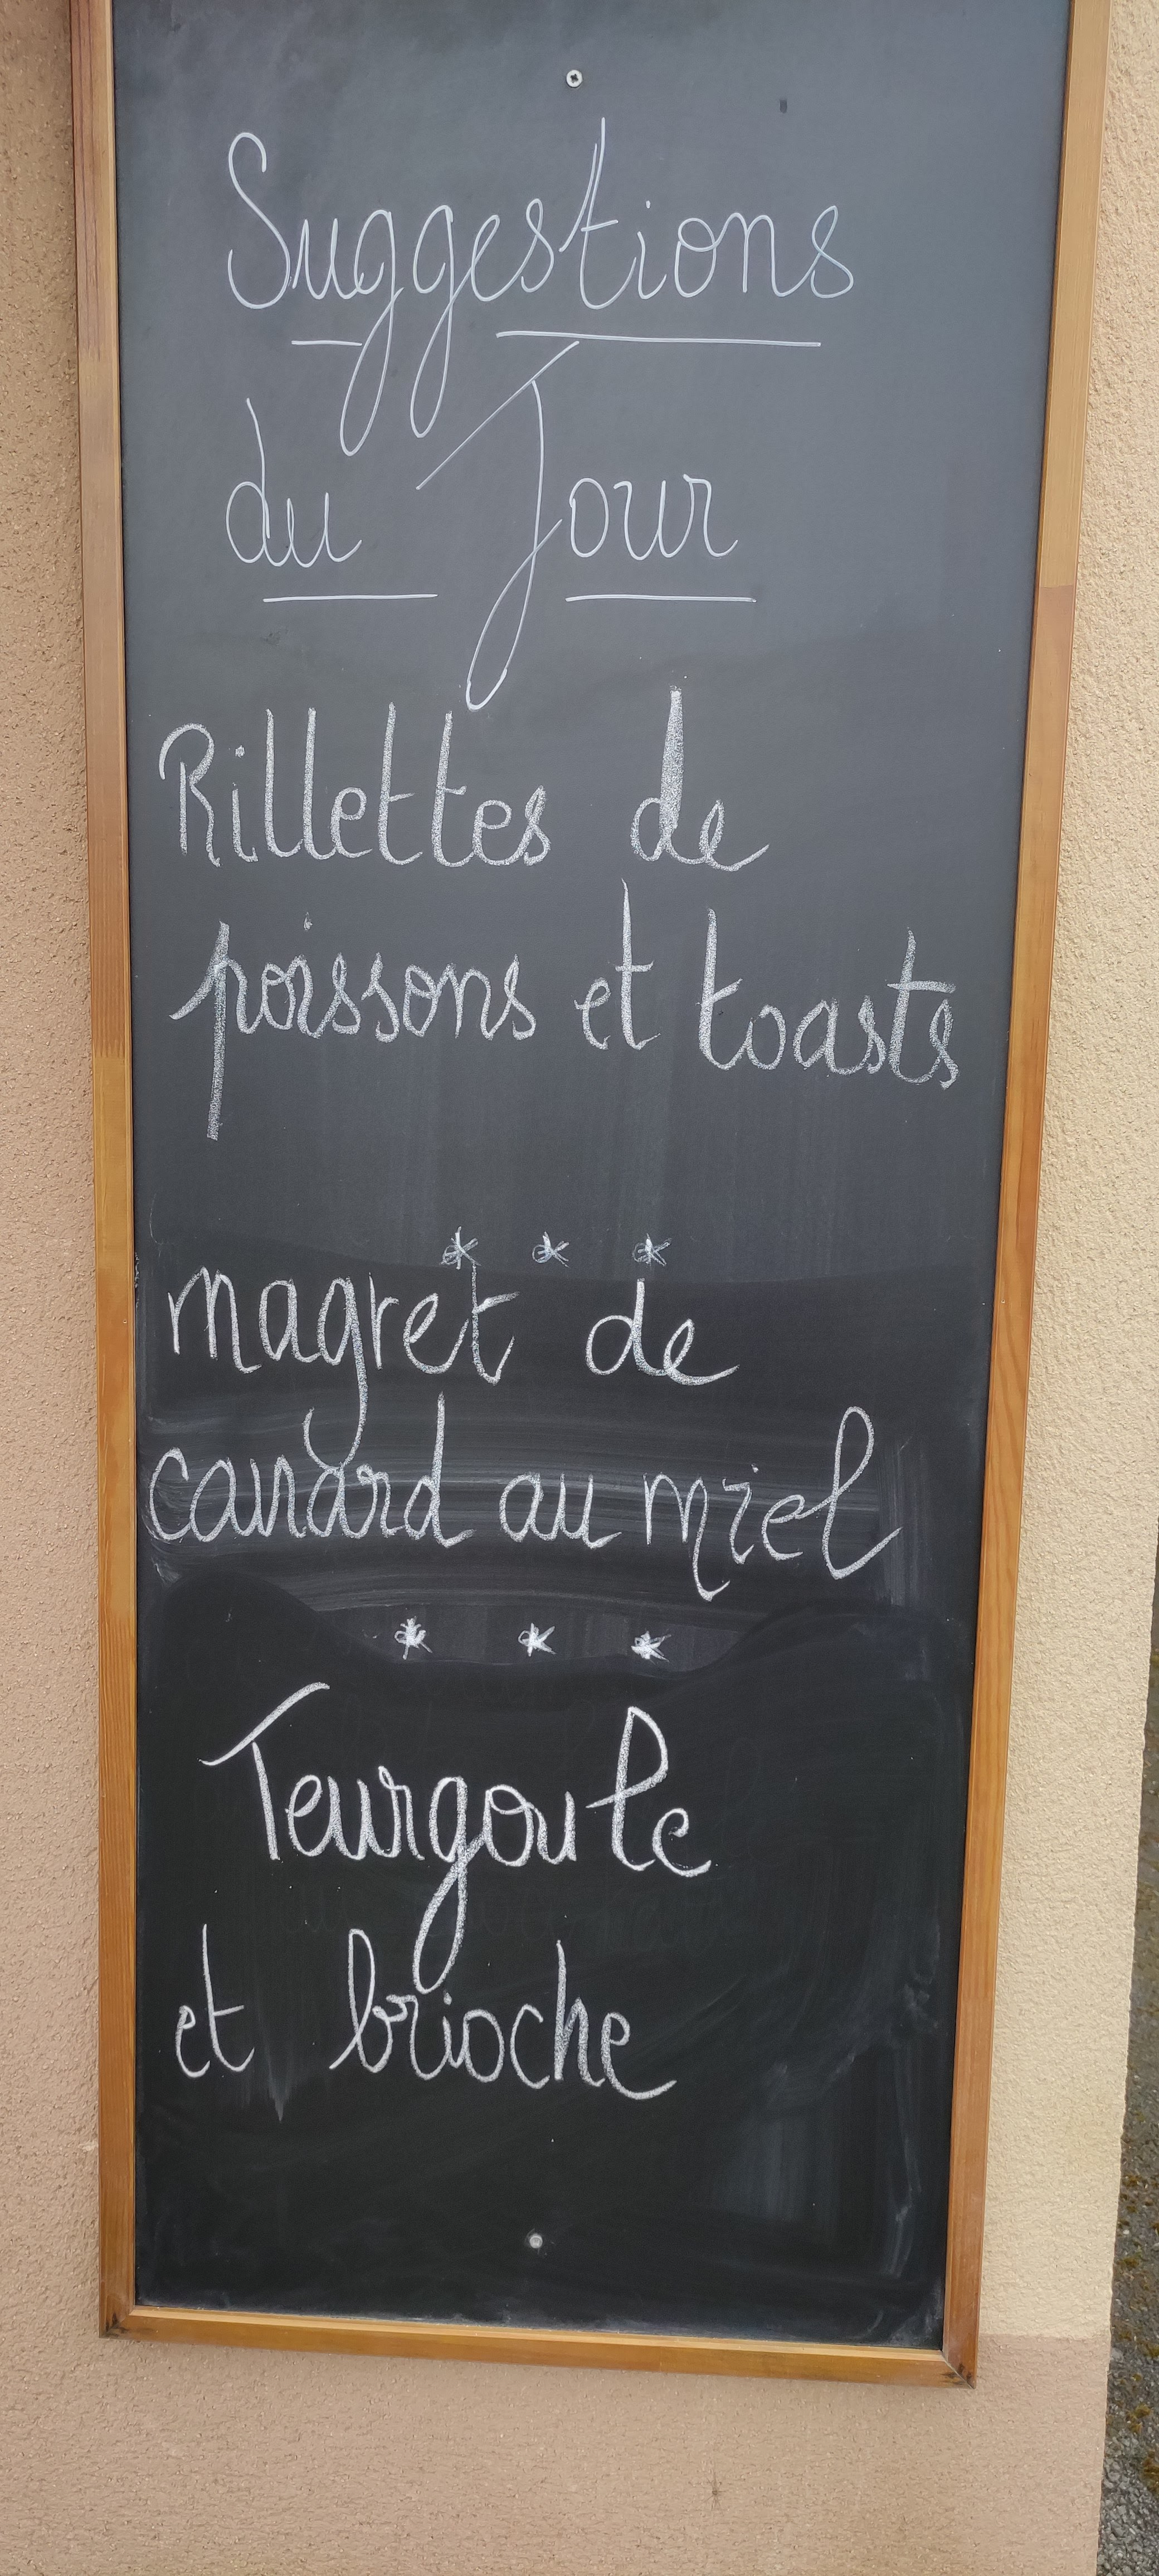 Suggestions
du Jour
Rillettes de
poissons et toasts
* * *
magret de
canard au miel
* * *
Teurgoule
et brioche